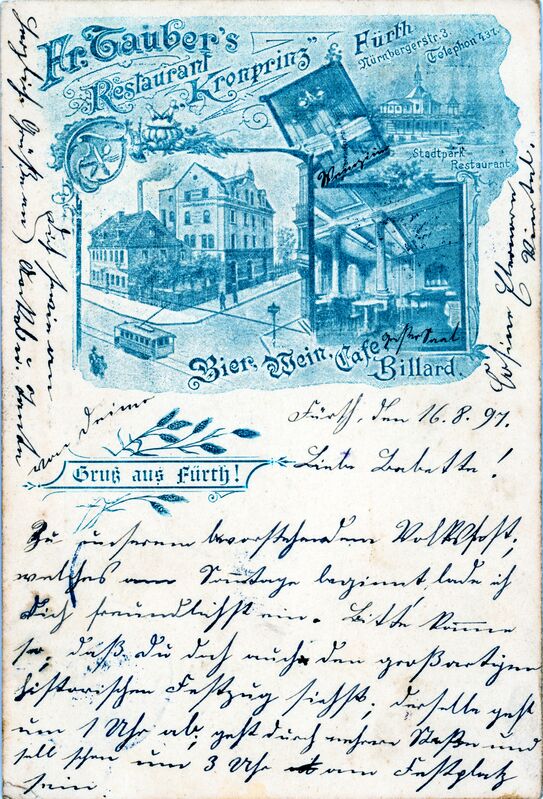 Fr. Tauber's
Restaurant „Kronprinz"
Fürth
Nürnbergerstr. 3.
Telephon 437.
Stadtpark
Restaurant
Weinzim
großer Saal
Bier, Wein, Café
Billard.
Gruß aus Fürth!
Fürth, den 16.8.97.
Liebe Babette!
Zu unserem bevorstehenden Volksfest,
welches am Sonntage beginnt, lade ich
Dich freundlichst ein. Bitte komme
so, daß Du doch auch den großartigen
historischen Festzug siehst; derselbe geht
um 1 Uhr ab, geht durch mehrere Straßen und
soll schon um 3 Uhr am Festplatz
sein.
Herzliche Grüße an
Dich sowie an
von Deiner